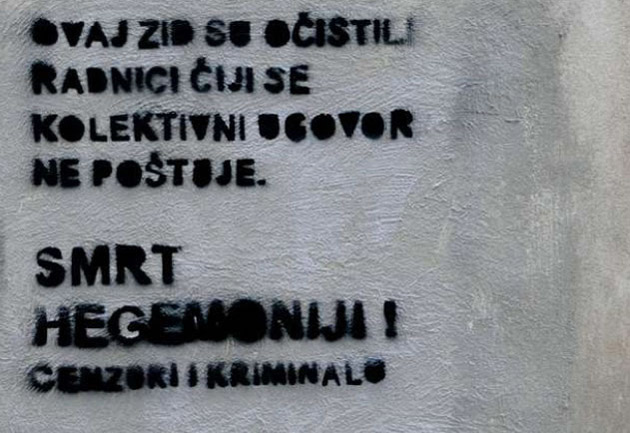 OVAJ ZID SU OČISTILI
RADNICI ČIJI SE
KOLEKTIVNI UGOVOR
NE POŠTUJE.
SMRT
HEGEMONIJI !
CENZORI I KRIMINALO